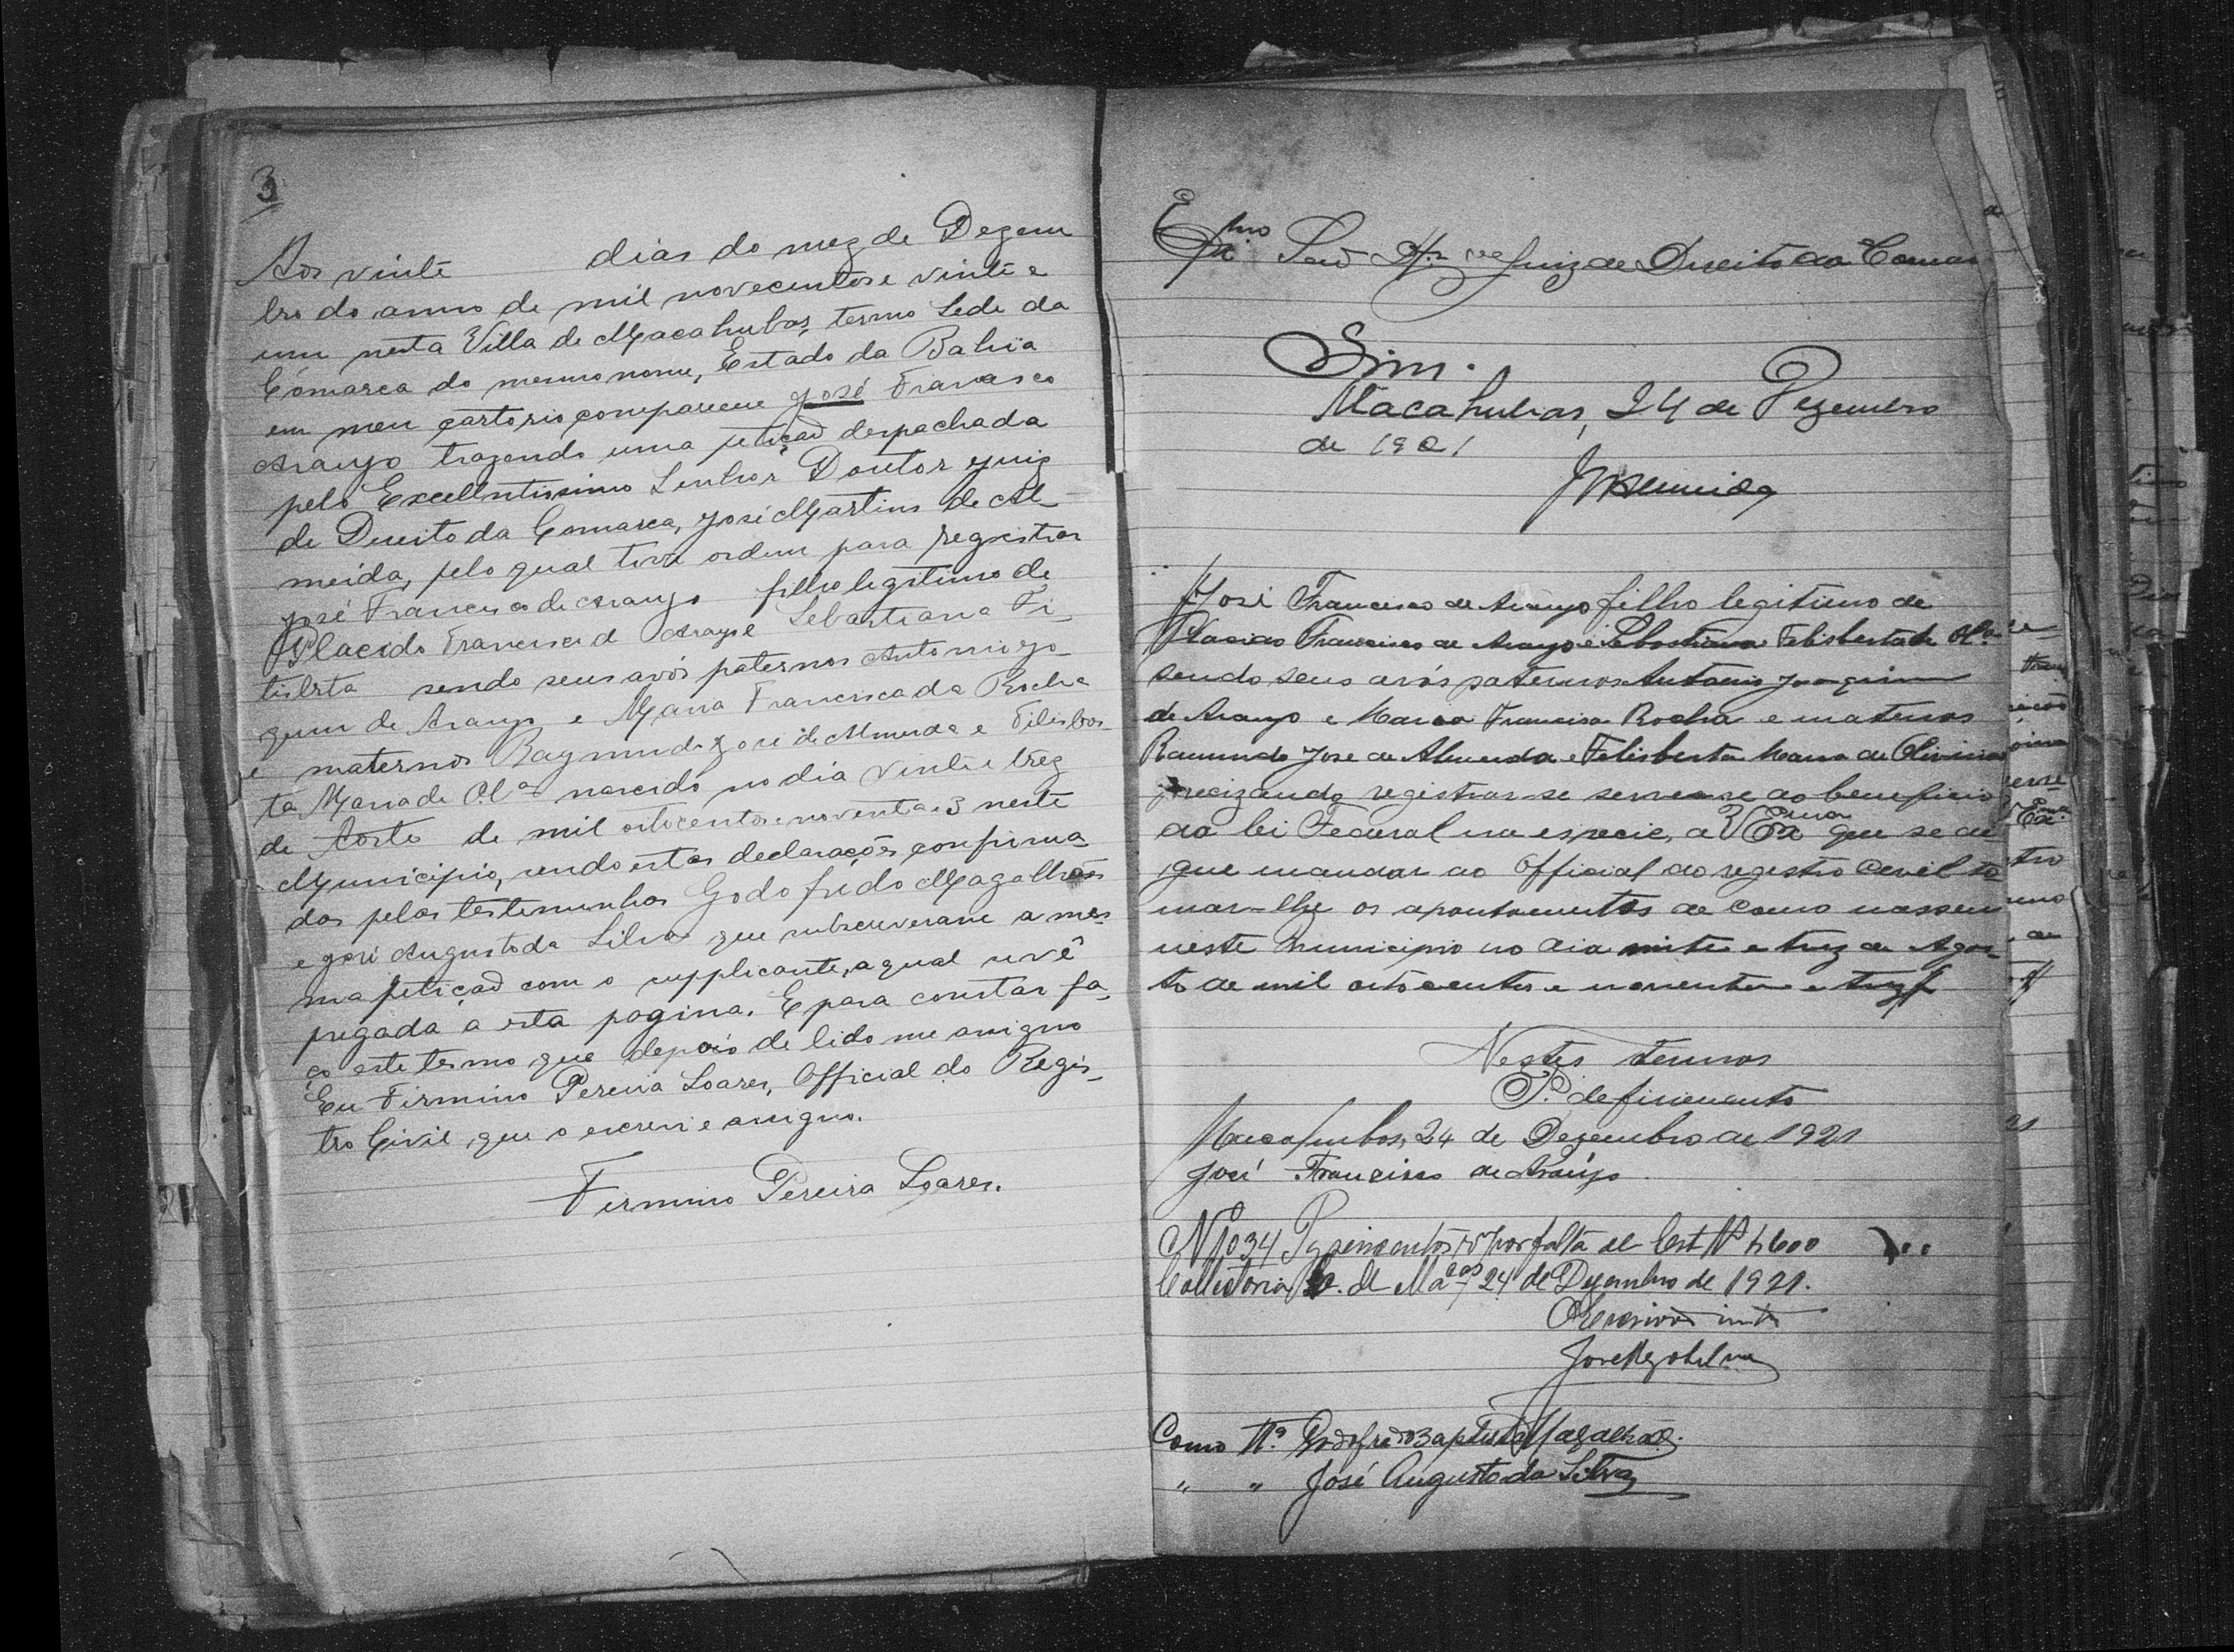 3
Aos vinte dias do mez de Dezem
bro do anno de mil novecentos e vinte e
um nesta Villa de Macahubas, termo Sede da
Comarca do mesmo nome, Estado da Bahia
em meu cartorio compareceu José Francisco
Araujo trazendo uma petiçaõ despachada
pelo Excellentissimo Senhor Doutor Juiz
de Direito da Comarca, José Martins de Al-
meida, pelo qual tive ordem para registrar
José Francisco de Araujo filho legitimo de
Placido Francisco d Araujo e Sebastiana Fi_
lisberta sendo seus avós paternos Antonio Jo_
quim de Araujo e Maria Francisca da Rocha
e maternos Raymundo José de Almeida e Filisber_
ta Maria de Olª nascido no dia vinte e trez
de Agosto de mil oitocentos e noventa e 3 neste
Municipio, sendo estas declarações confirma_
das pelas testemunhas Godofredo Magalhães
e José Augusto da Silva que subscreveram a mes_
ma petiçaõ com o supplicante, a qual se vê
pregada a esta pagina. E para constar fa_
ço este termo que depois de lido me assigno
Eu Firmino Pereira Soares, Official do Regis_
tro Civil, que o escrevi e assigno.
Firmino Pereira Soares.
Exmo Snr Dr Juiz de Direito da Comar
Sim.
Macahubas, 24 de Dezembro
de 1921
JMAlmeida
José Francisco de Araujo filho legitimo de
Placido Francisco de Araujo e Sebastiana Felisberta de Olª
sendo seus avós paternos Antonio Joaquim
de Araujo e Maria Francisca Rocha e maternos
Raimundo José de Almeida e Felisberta Maria de Oliveira
precizando registrar-se servem-se do beneficio
da lei Federal na especie, a V Exa que se di
gne mandar ao Official do registro Cevil to
mar-lhe os apontamentos de como nasseu
neste Municipio no dia vinte e trez de Agos_
to de mil oitocentos e noventa e trez
Nestes termos
P. deferimento
Macahubas, 24 de Dezembro de 1921
José Francisco de Araujo
por falta de Est
Collectoria de Macas, 24 de Dezembro de 1921.
O Escrivão
Como Tª Godofredo Baptista Magalhães.
" " José Augusto da Silva